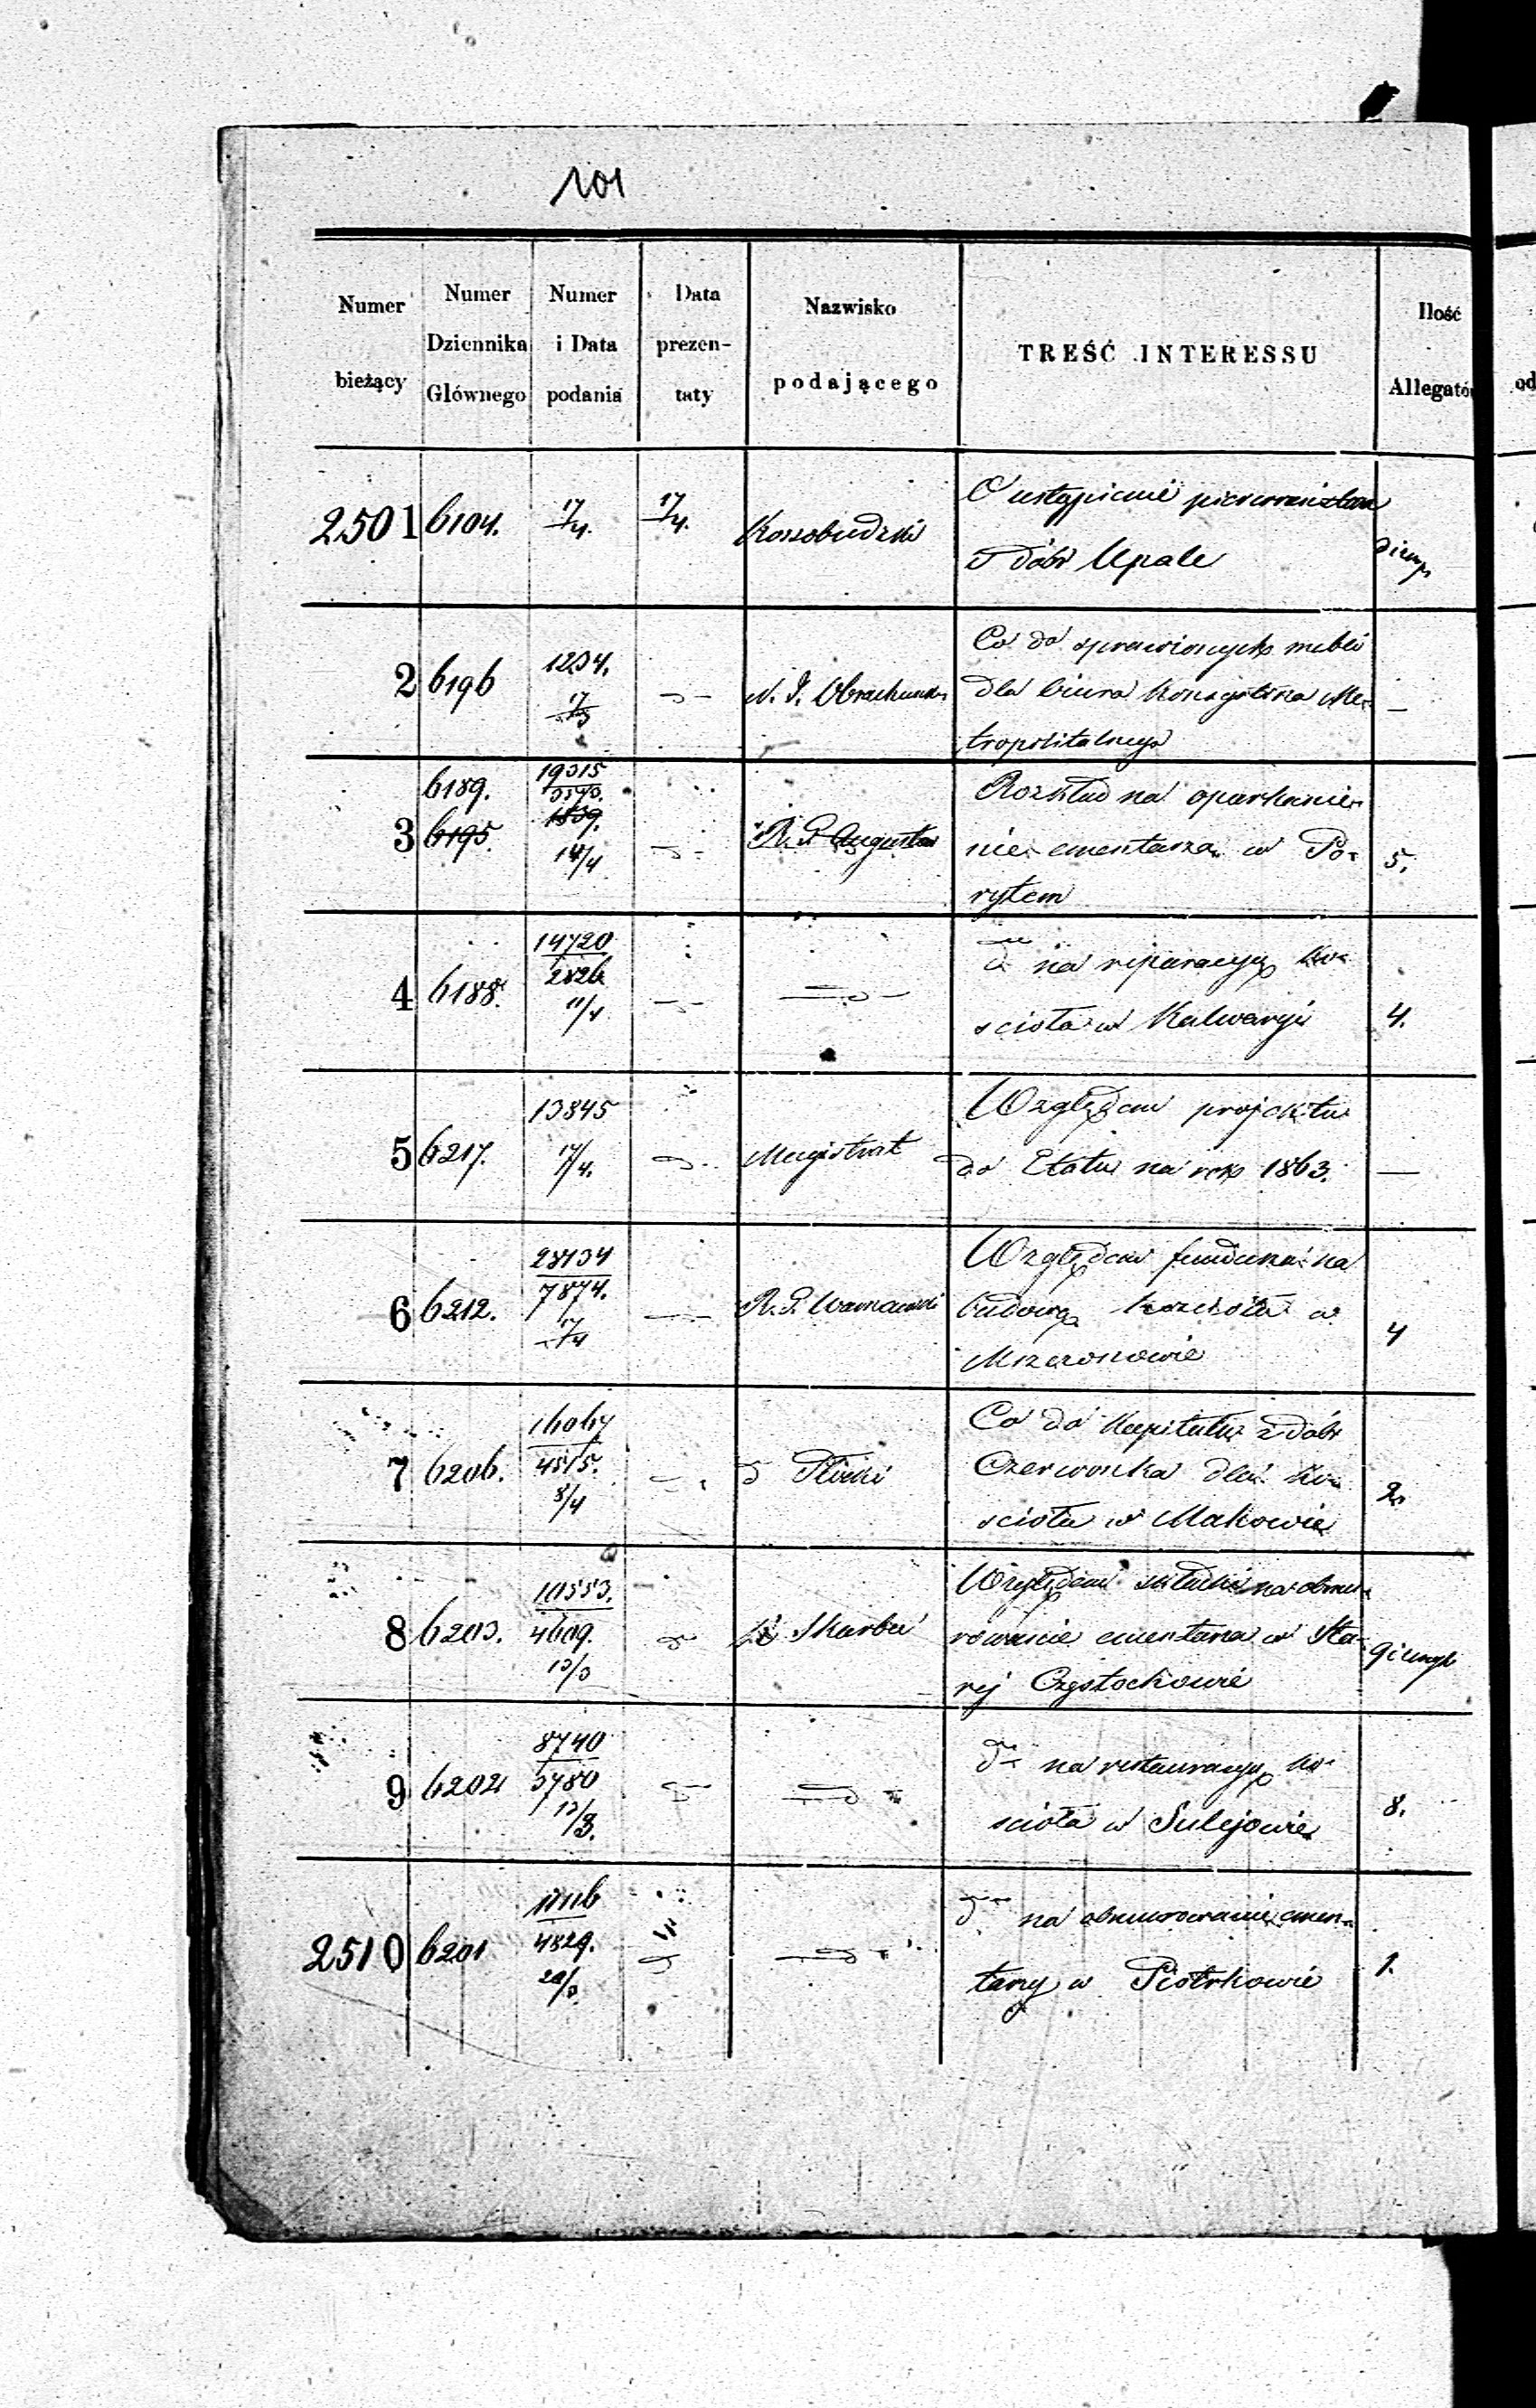 101
Numer bieżący
Numer Dziennika Głównego
Numer i Data podania
Data prezen- taty
Nazwisko podającego
TREŚĆ INTERESSU
Ilość
od
2501 6104. 17/4. 17/4. Kossobudzki
O ustąpienie pierwszeństwa
z dóbr Upale
2 6196 1234. N. I. Obrachunk.
Co do sprawionych mebli
dla biura Konsystorza Me-
tropolitalnego
3 6189. 6195. 19315 14/4 R. G. Augustow
Rozkład na oparkanie-
nie cmentarza w Po-
rytem
5.
4 6188. 14720 2826 11/4
do na reparacyę ko-
scioła w Kalwaryi
4.
5 6217. 13845 17/4. Magistrat
Względem projektu
do Etatu na rok 1863. —
6 6212. 28134 7874. 17/4 R. G. Warszawski
Względem funduszu na
budowę kościoła w
Mszczonowie
4
7 6206. 16067 4515. 8/4 d Płocki
Co do Kapitału z dóbr
Czerwonka dla ko-
scioła w Makowie
2.
8 6203. 10553. 4609. 13/3 Skarbu
Względem składki na obmu-
rowanie cmentarza w Sta-
rej Częstochowie
9 6202 8740 3780 13/3.
do na restauracyę ko-
scioła w Sulejowie
8.
2510 6201 4829. 20/3
do na obmurowanie cmen-
tarzy w Piotrkowie
1.